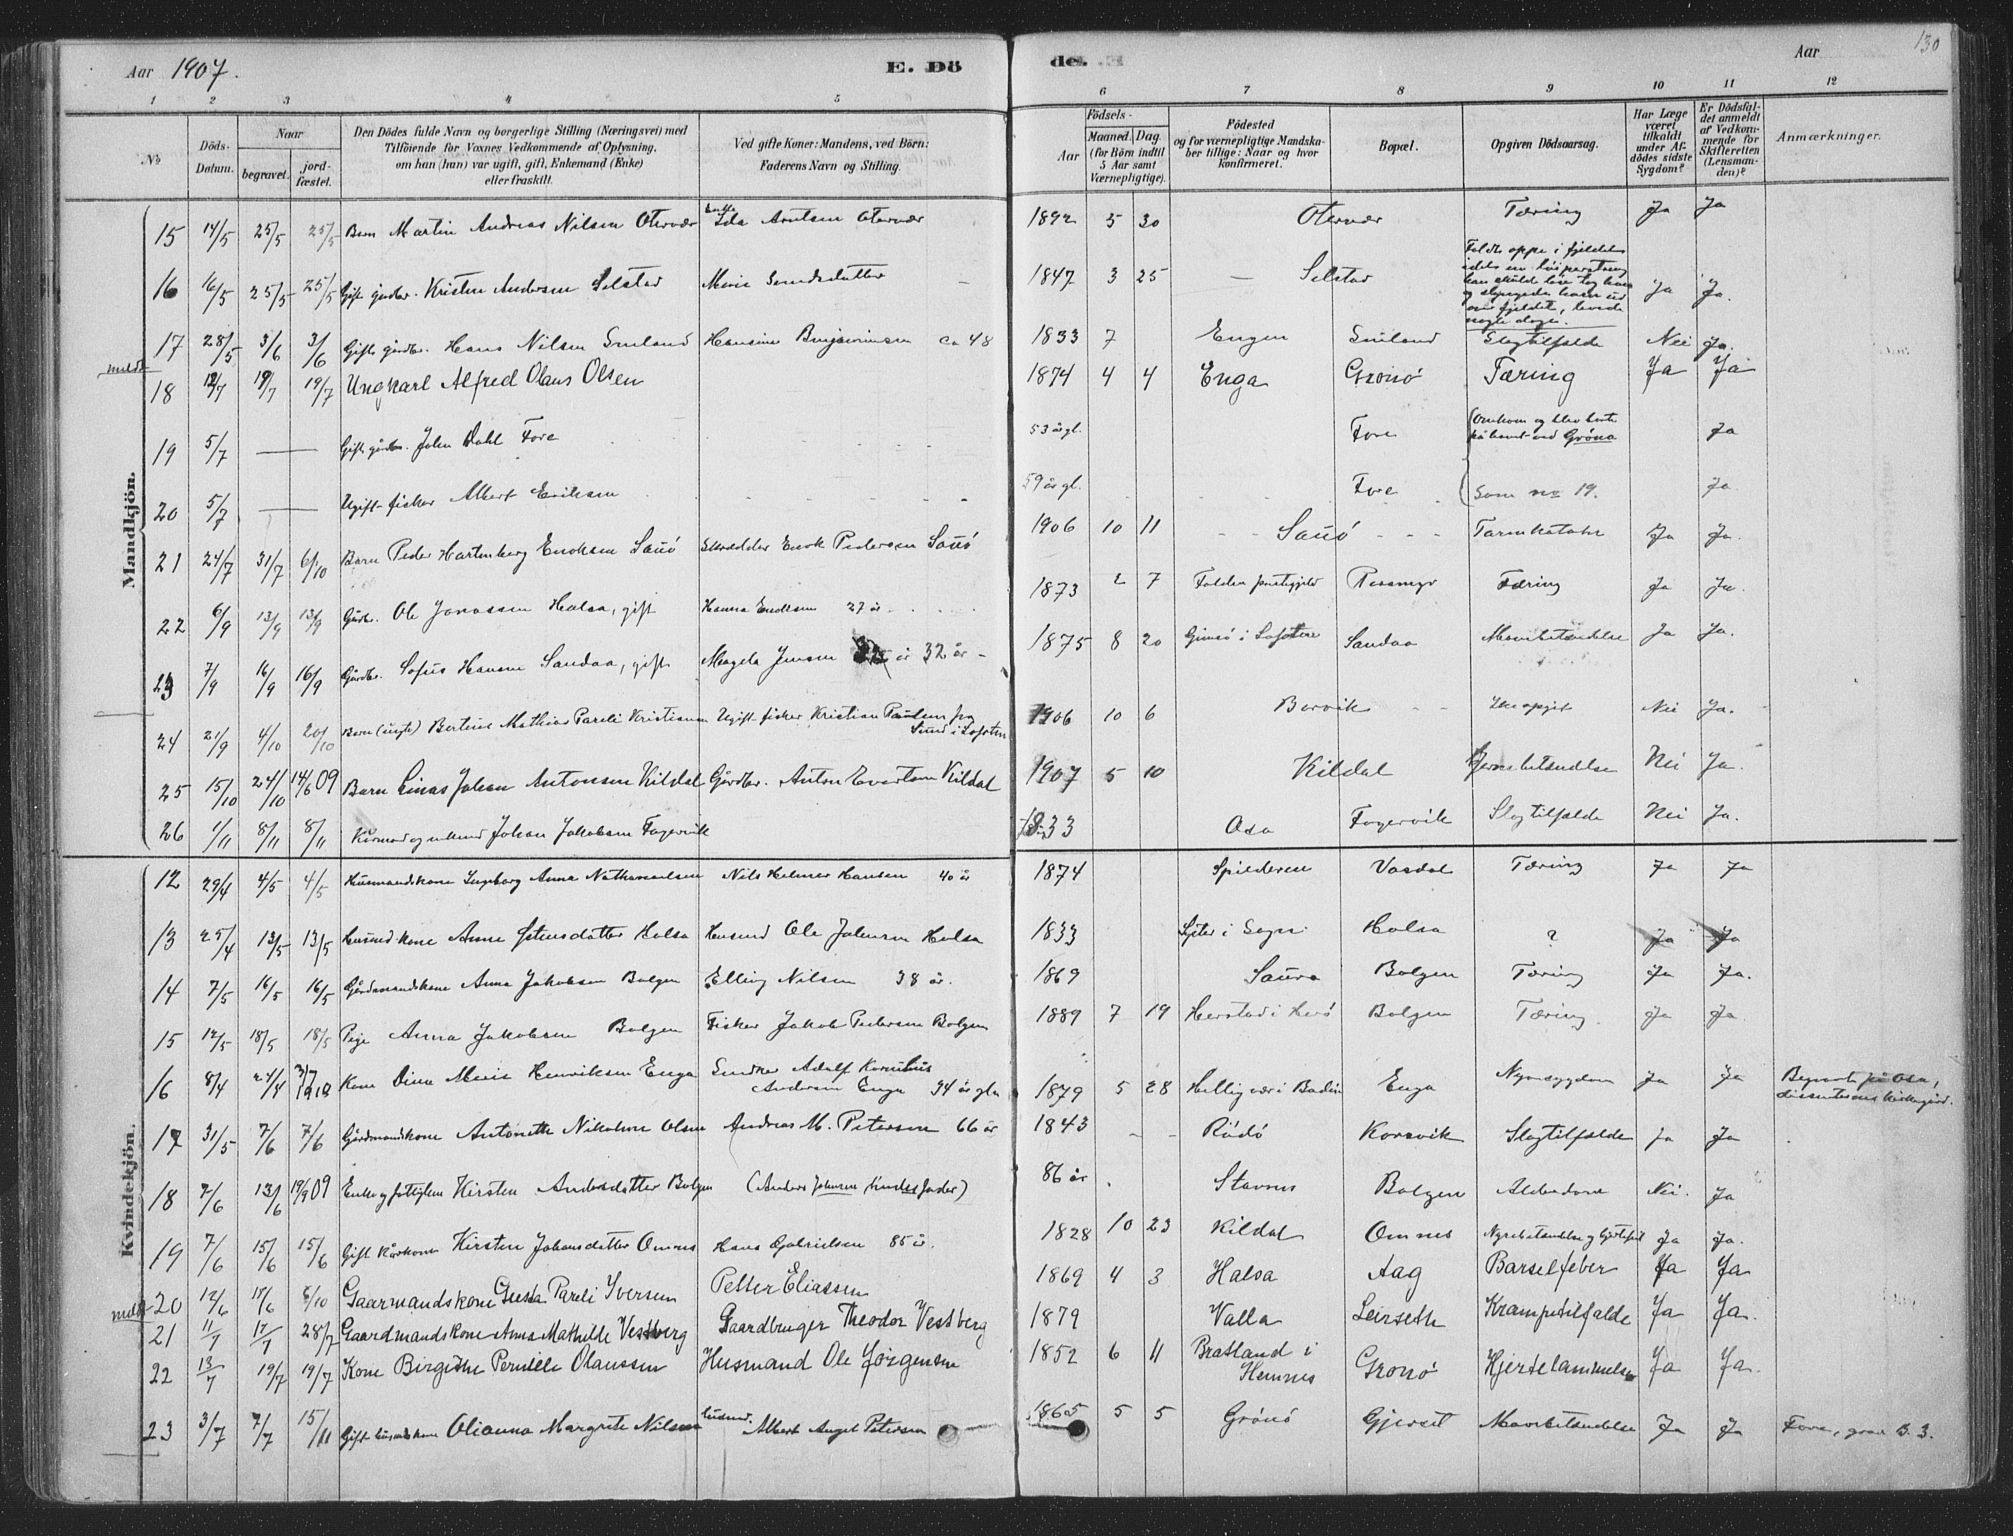 Aar 1907. E. Dö de. Aar 130
1 2 3 4 5 6 7 8 9 10 11 12
No
Döds-Datum.
Naar
begravet.
jord-fæstet.
Den Dödes fulde Navn og borgerlige Stilling (Næringsvei) med
Tilföiende for Voxnes Vedkommende af Oplysning,
om han (hun) var ugift, gift, Enkemand (Enke)
eller fraskilt.
Ved gifte Koner: Mandens, ved Börn:
Faderens Navn og Stilling.
Födsels-
Aar
Maaned. Dag.
(for Börn indtil
5 Aar samt
Værnepligtige).
Födested
og for værnepligtige Mandska-
ber tillige: Naar og hvor
konfirmeret.
Bopæl.
Opgiven Dödsaarsag.
Har Læge
været
tilkaldt
under Af-
dödes sidste
Sygdom?
Er Dödsfal-
det anmeldt
af Vedkom-
mende for
Skifteretten
(Lensman-
den)?
Anmærkninger.
Mandkjön.
15 14/5 25/5 25/5 Barn Martin Andreas Nilsen Otervær Arntsen Otervær 1892 5 30 Otervær Tæring Ja Ja
16 16/5 25/5 25/5 Gift gårdbr. Kristen Andersen Selstad Merie 1847 3 25 — Selstad Ja Ja.
17 28/5 3/6 3/6 Gift gårdbr. Hans Nilsen Småland Hansine Benjaminsen ca 48 1833 7 Engen Småland Slagtilfælde Nei Ja.
18 12/7 19/7 19/7 Ungkarl Alfred Olaus Olsen 1874 4 4 Enga Gronö Tæring Ja Ja
19 5/7 — Gift gårdbr. John Dahl Fore 53 år gl. Fore Omkom og blev borte på havet ved Gröna Ja
20 5/7 — Ugift fisker Albert Eriksen 59 år gl. Fore Som no 19. Ja
21 24/7 31/7 6/10 Barn Peder Hartenberg Enoksen Sauö Skrædder Enok Pedersen Sauö 1906 10 11 Sauö Tarmkatahr Ja Ja.
22 6/9 13/9 13/9 Gårdbr. Ole Jonassen Halsa, gift Hanna Enoksen 27 år 1873 2 7 Folden prestegjeld Rossmyr Tæring Ja Ja.
23 7/9 16/9 16/9 Gårdbr. Sofus Hansen Sandaa, gift Magda Jensen 32 år 1875 8 20 Gimsö i Lofoten Sandaa Mavebetændelse Ja Ja.
24 21/9 4/10 20/10 Barn (uægte) Bertius Mathias Pareli Kristiansen Ugift fisker Kristian Paulsen fra Sund i Lofoten 1906 10 6 Borvik Ikke opgit Nei Ja.
25 15/10 24/10 14/6 09 Barn Einas Johan Antonsen Kildal Gårdbr. Anton Evertsen Kildal 1907 5 10 Kildal Hjernebetændelse Nei Ja.
26 1/11 8/11 8/11 Kårmand og enkemd Johan Jakobsen Fagervik 1833 Osa Fagervik Slagtilfælde Nei Ja.
Kvindekjön.
12 29/4 4/5 4/5 Husmandskone Ingeborg Anna Nathanaelsen Nils Helmer Hansen 40 år 1874 Spilderen Vasdal Tæring Ja Ja
13 25/4 13/5 13/5 Husmd.kone Anne Halsa Husmd Ole Johnsen Halsa 1833 Lyster i Sogn Halsa ? Ja Ja
14 7/5 16/5 16/5 Gårdmandskone Anna Jakobsen Bolgen Elling Nilsen 38 år. 1869 Saura Bolgen Tæring Ja Ja.
15 12/5 18/5 18/5 Pige Anna Jakobsen Bolgen Fisker Jakob Pedersen Bolgen 1889 7 19 Herstad i Herö Bolgen Tæring. Ja Ja.
16 8/4 24/4 3/7 1910 Kone Dina Merie Henriksen Enga Smdkr Adolf Kornelius Andersen Enga 34 år gl. 1879 5 28 Helligvær i Bodin Enga Nyresygdom Ja Ja Begravet på Osa, dissenternes kirkegård.
17 31/5 7/6 7/6 Gårdmandskone Antonette Nikoline Olsen Andreas M. Petersen 66 år 1843 — — Rödö Korsvik Slagtilfælde ja Ja
18 7/6 13/6 19/9 09 Enke og fattiglem Kirsten Andersdatter Bolgen (Anders Johnsen Lindset fader) 86 år Stavnes Bolgen Alderdom Nei. Ja
19 7/6 15/6 15/6 Gift kårkone Kirsten Johansdatter Omnes Hans Gabrielsen 85 år. 1828 10 23 Kildal Omnes Nyrebetændelse og hjertefeil Ja Ja.
20 12/6 18/6 6/10 Gaarmandskone Gusta Pareli Iversen Petter Eliassen 1869 4 3 Halsa Aag Barselfeber Ja Ja
21 11/7 17/7 28/7 Gaardmandskone Anna Mathilde Vestberg Gaardbruger Theodor Vestberg 1879 Valla Leirseth Krampetilfælde Ja Ja.
22 13/7 19/7 19/7 Kone Birgithe Pernille Olaussen Husmand Ole Jörgensen 1852 6 11 Bratland i Hemnes Gronö Hjertelammelse Ja Ja.
23 3/7 7/7 15/11 Gift husmdskone Olianna Margrete Nilsen husmd. Albert Angel Petersen 1865 5 5 Grönö Gjerset Mavebetændelse Ja Ja Fore, grav B. 3.